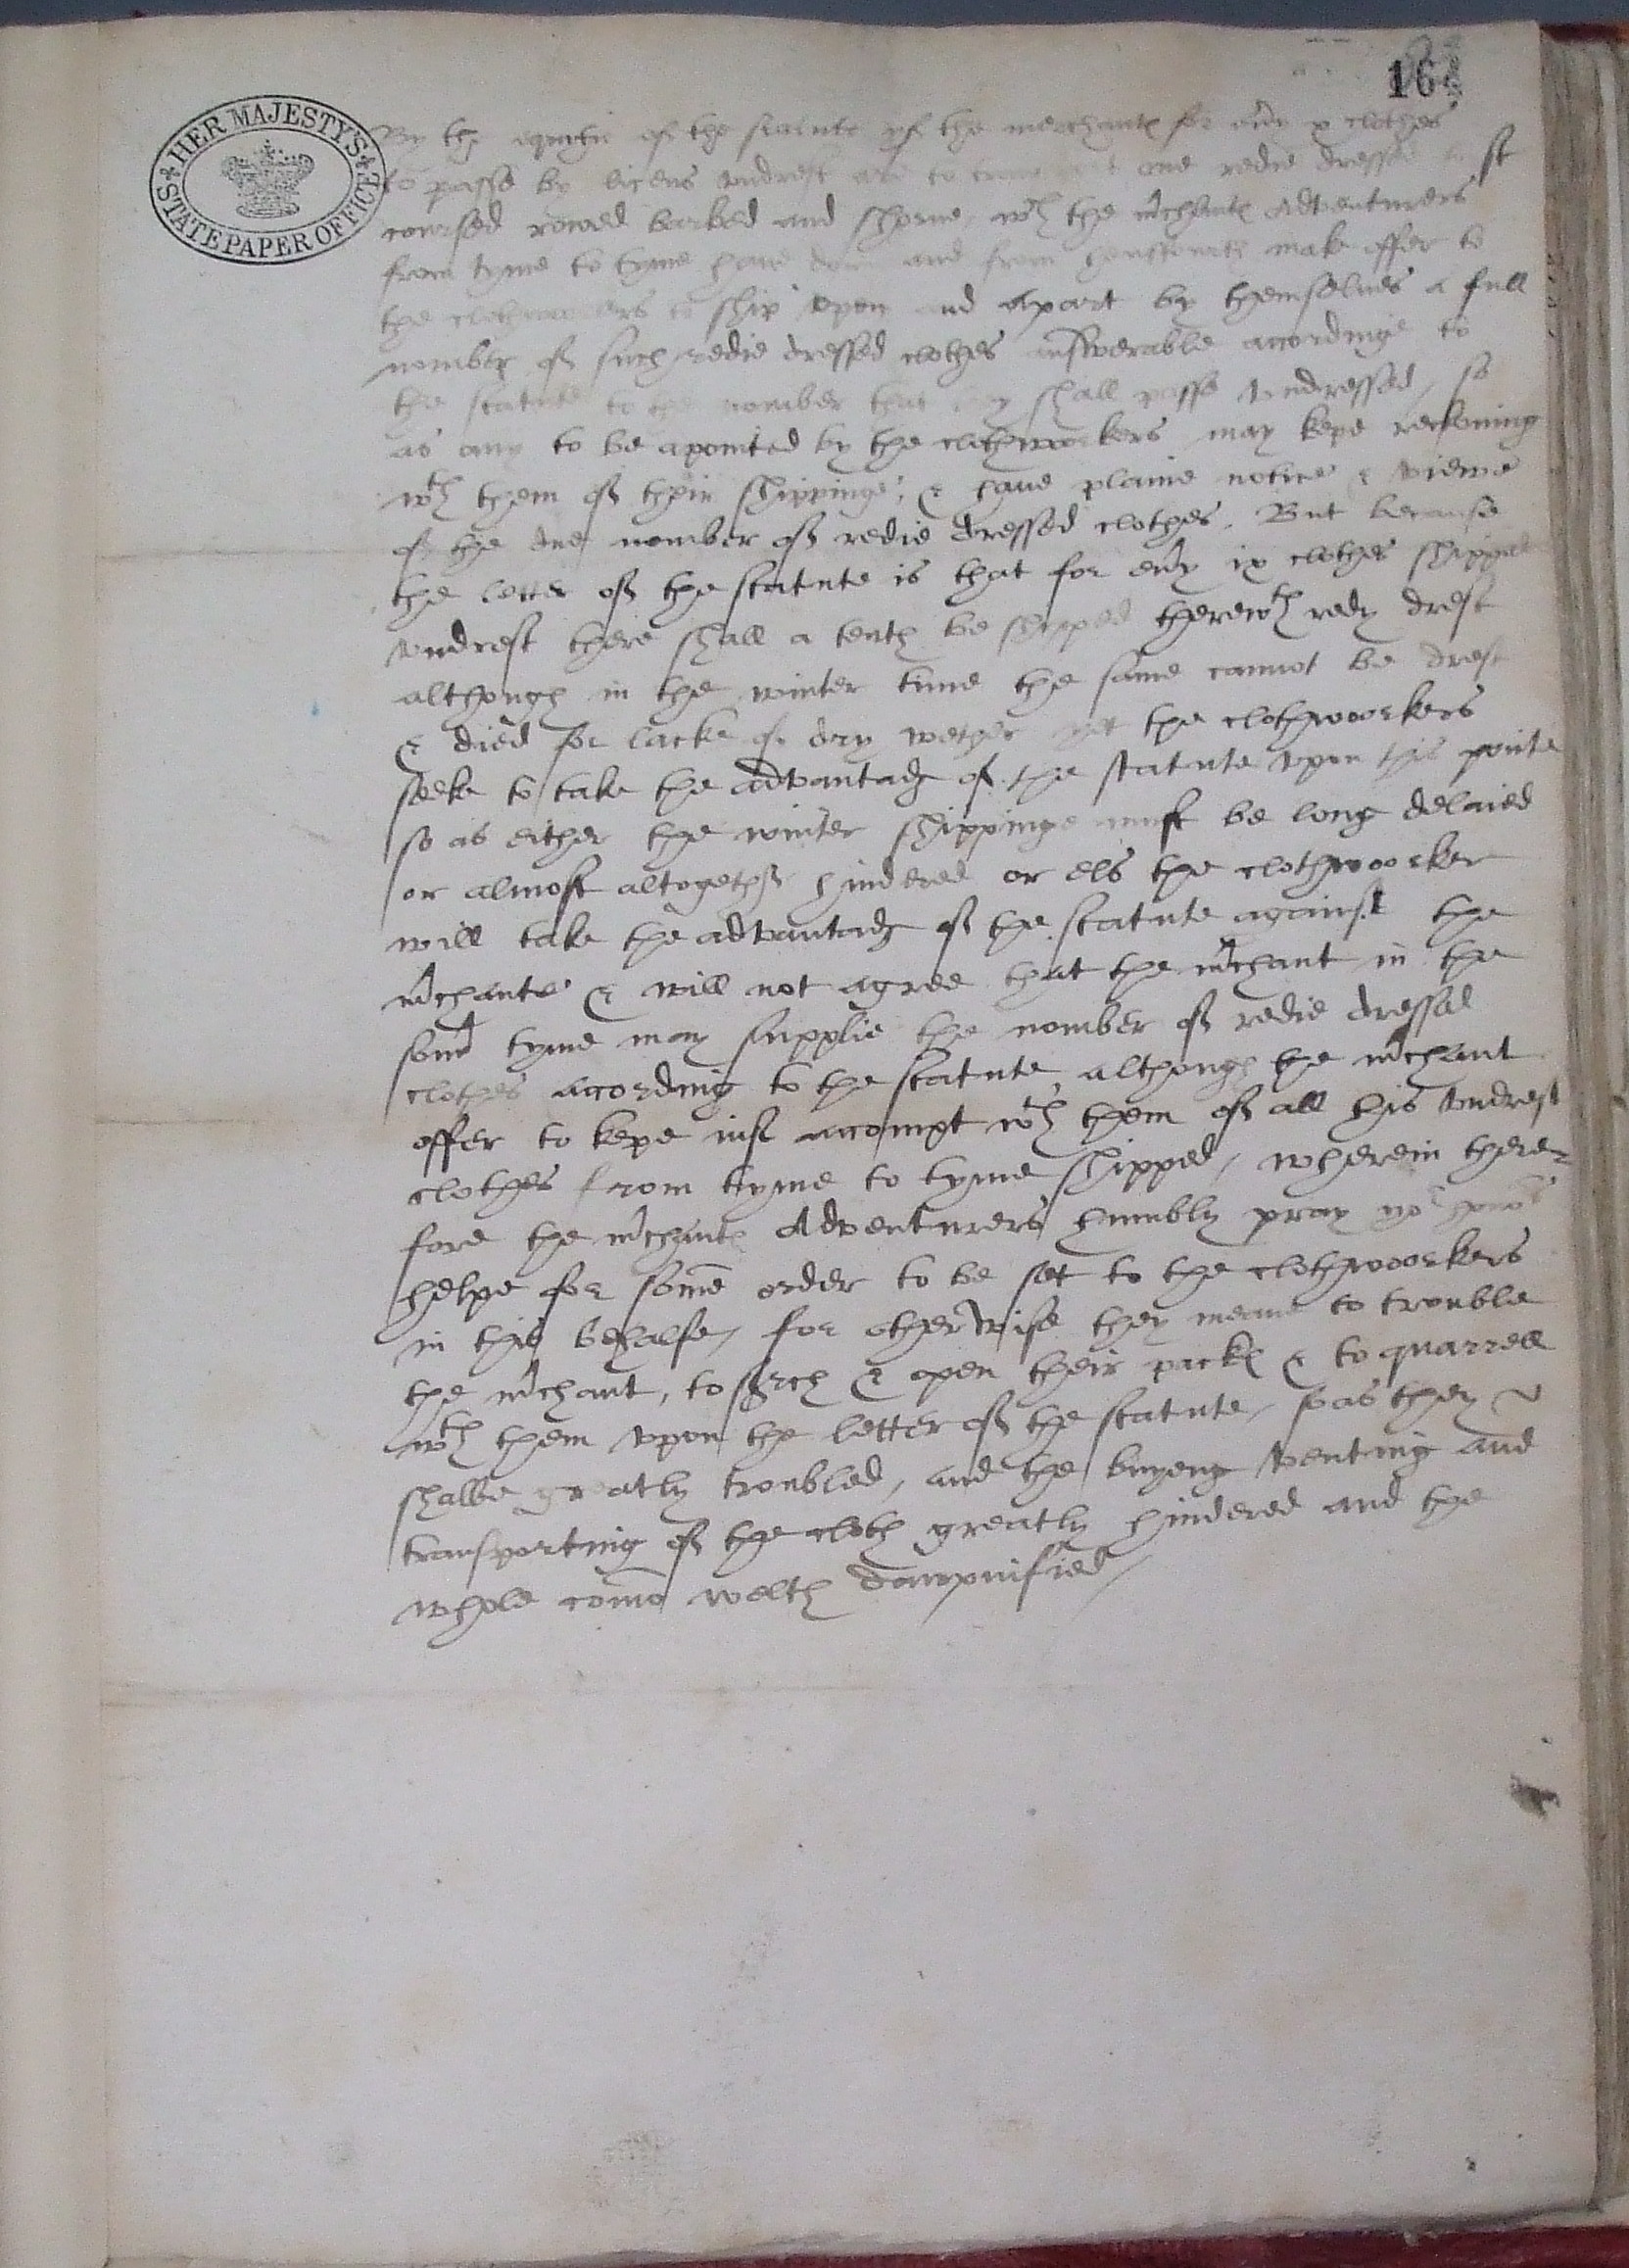 16
HER MAJESTY'S STATE PAPER OFFICE
By the equitie of the statute yf the merchant for euy x clothes
to passe by licens vndrest are to one redie dressed st
coursed rowed barbed and shorne, wch the mchants Adventurers
from tyme to tyme haue done and from hensforth make offer to
the clothworkers to ship open and apart by themselues a full
nomber of such redie dressed clothes answerable accordinge to
the statute to the nomber that they shall passe vndressed, so
as any to be apointed by the clothwoorkers may kepe reckoning
wth them of their shippinge, & haue plaine notice & viewe
of the due nomber of redie dressed clothes. But because
the letter of the statute is that for euy ix clothes shipped
vndrest there shall a tenth be shipped therewth redy drest
although in the winter time the same cannot be drest
& died for lacke of dry wether yet the clothwoorkers
seeke to take the advantadg of the statute vpon this pointe
so as either the winter shippinge must be long delaied
or almost altogether hindered or els the clothwoorker
will take the advantadg of the statute against the
mchante & will not agree that the mchant in the
somr tyme may supplie the nomber of redie dressed
clothes acording to the statute, although the mchant
offer to kepe iust accompt wth them of all his vndrest
clothes from tyme to tyme shipped, wherein there=
fore the mchants Adventurers humbly pray yor honors
helpe for some order to be set to the clothwoorkers
in this behalfe, for otherwise they meane to trouble
the mchant, to serch & open their packs & to quarrell
wth them vpon the letter of the statute, so as they
shalbe greatly troubled, and the buyeng venting and
transporting of the cloth greatly hindered and the
whole como welth dampnified,